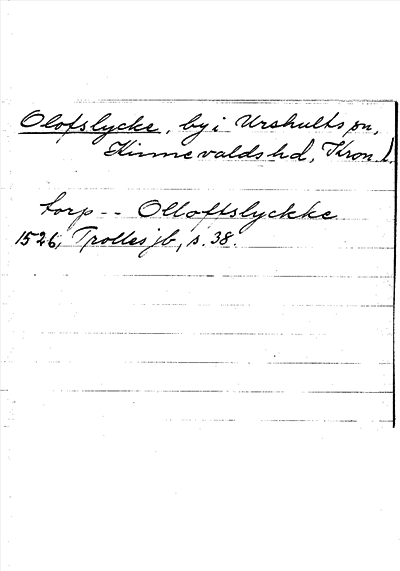 Olofslycke, by i Urshults sn,
Kinnevalds hd, Kron. l.
torp -- Olloftslyckke
1526, Trolles jb, s. 38.